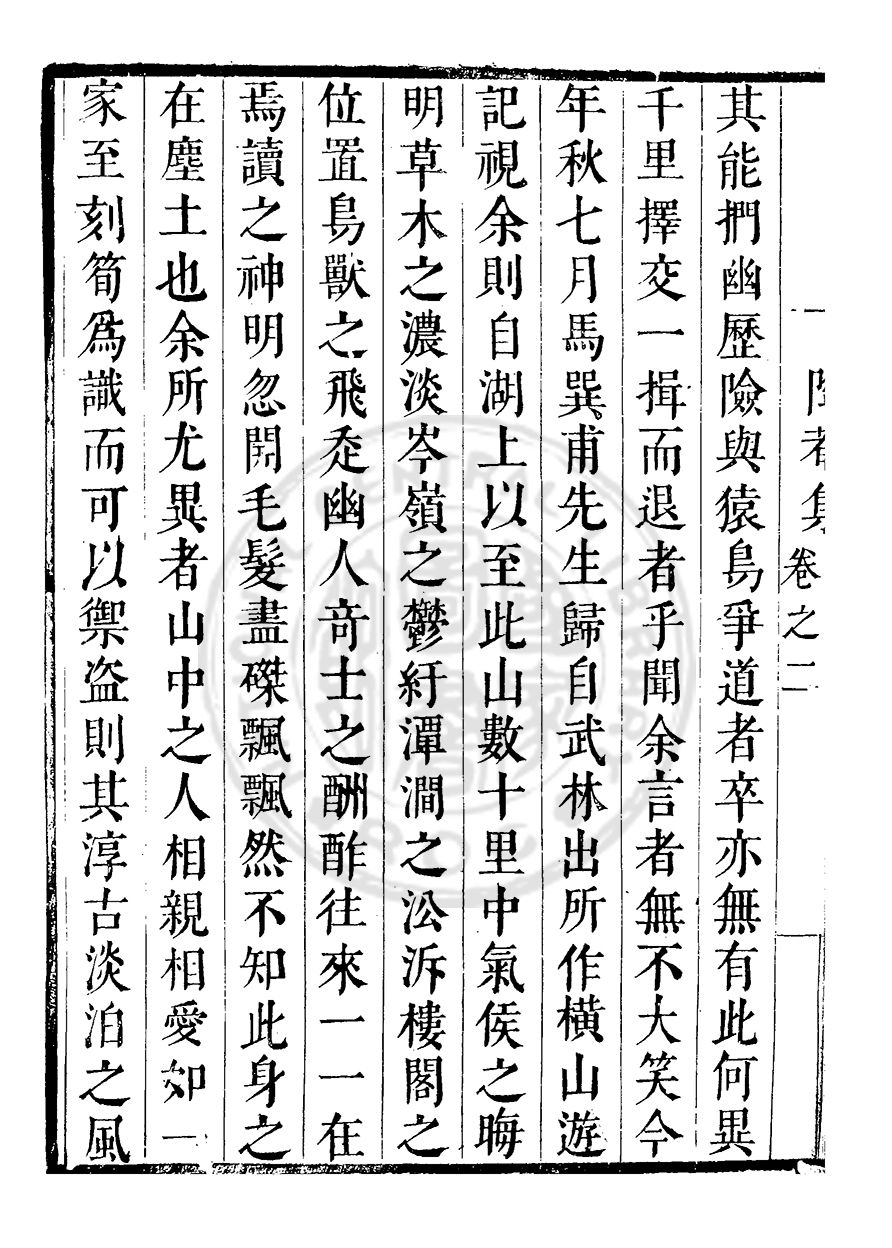 卷之二
其能捫幽歷險與猿鳥爭道者卒亦無有此何異
千里擇交一揖而退者乎聞余言者無不大笑今
年秋七月馬巽甫先生歸自武林出所作橫山遊
記視余則自湖上以至此山數十里中氣侯之晦
明草木之濃淡岑嶺之鬱紆潭澗之㳂泝樓閣之
位置鳥獸之飛走幽人奇士之酬酢往來一一在
焉讀之神明忽開毛髮盡磔飄飄然不知此身之
在塵土也余所尤異者山中之人相親相愛如一
家至刻筍爲識而可以禦盜則其淳古淡泊之風